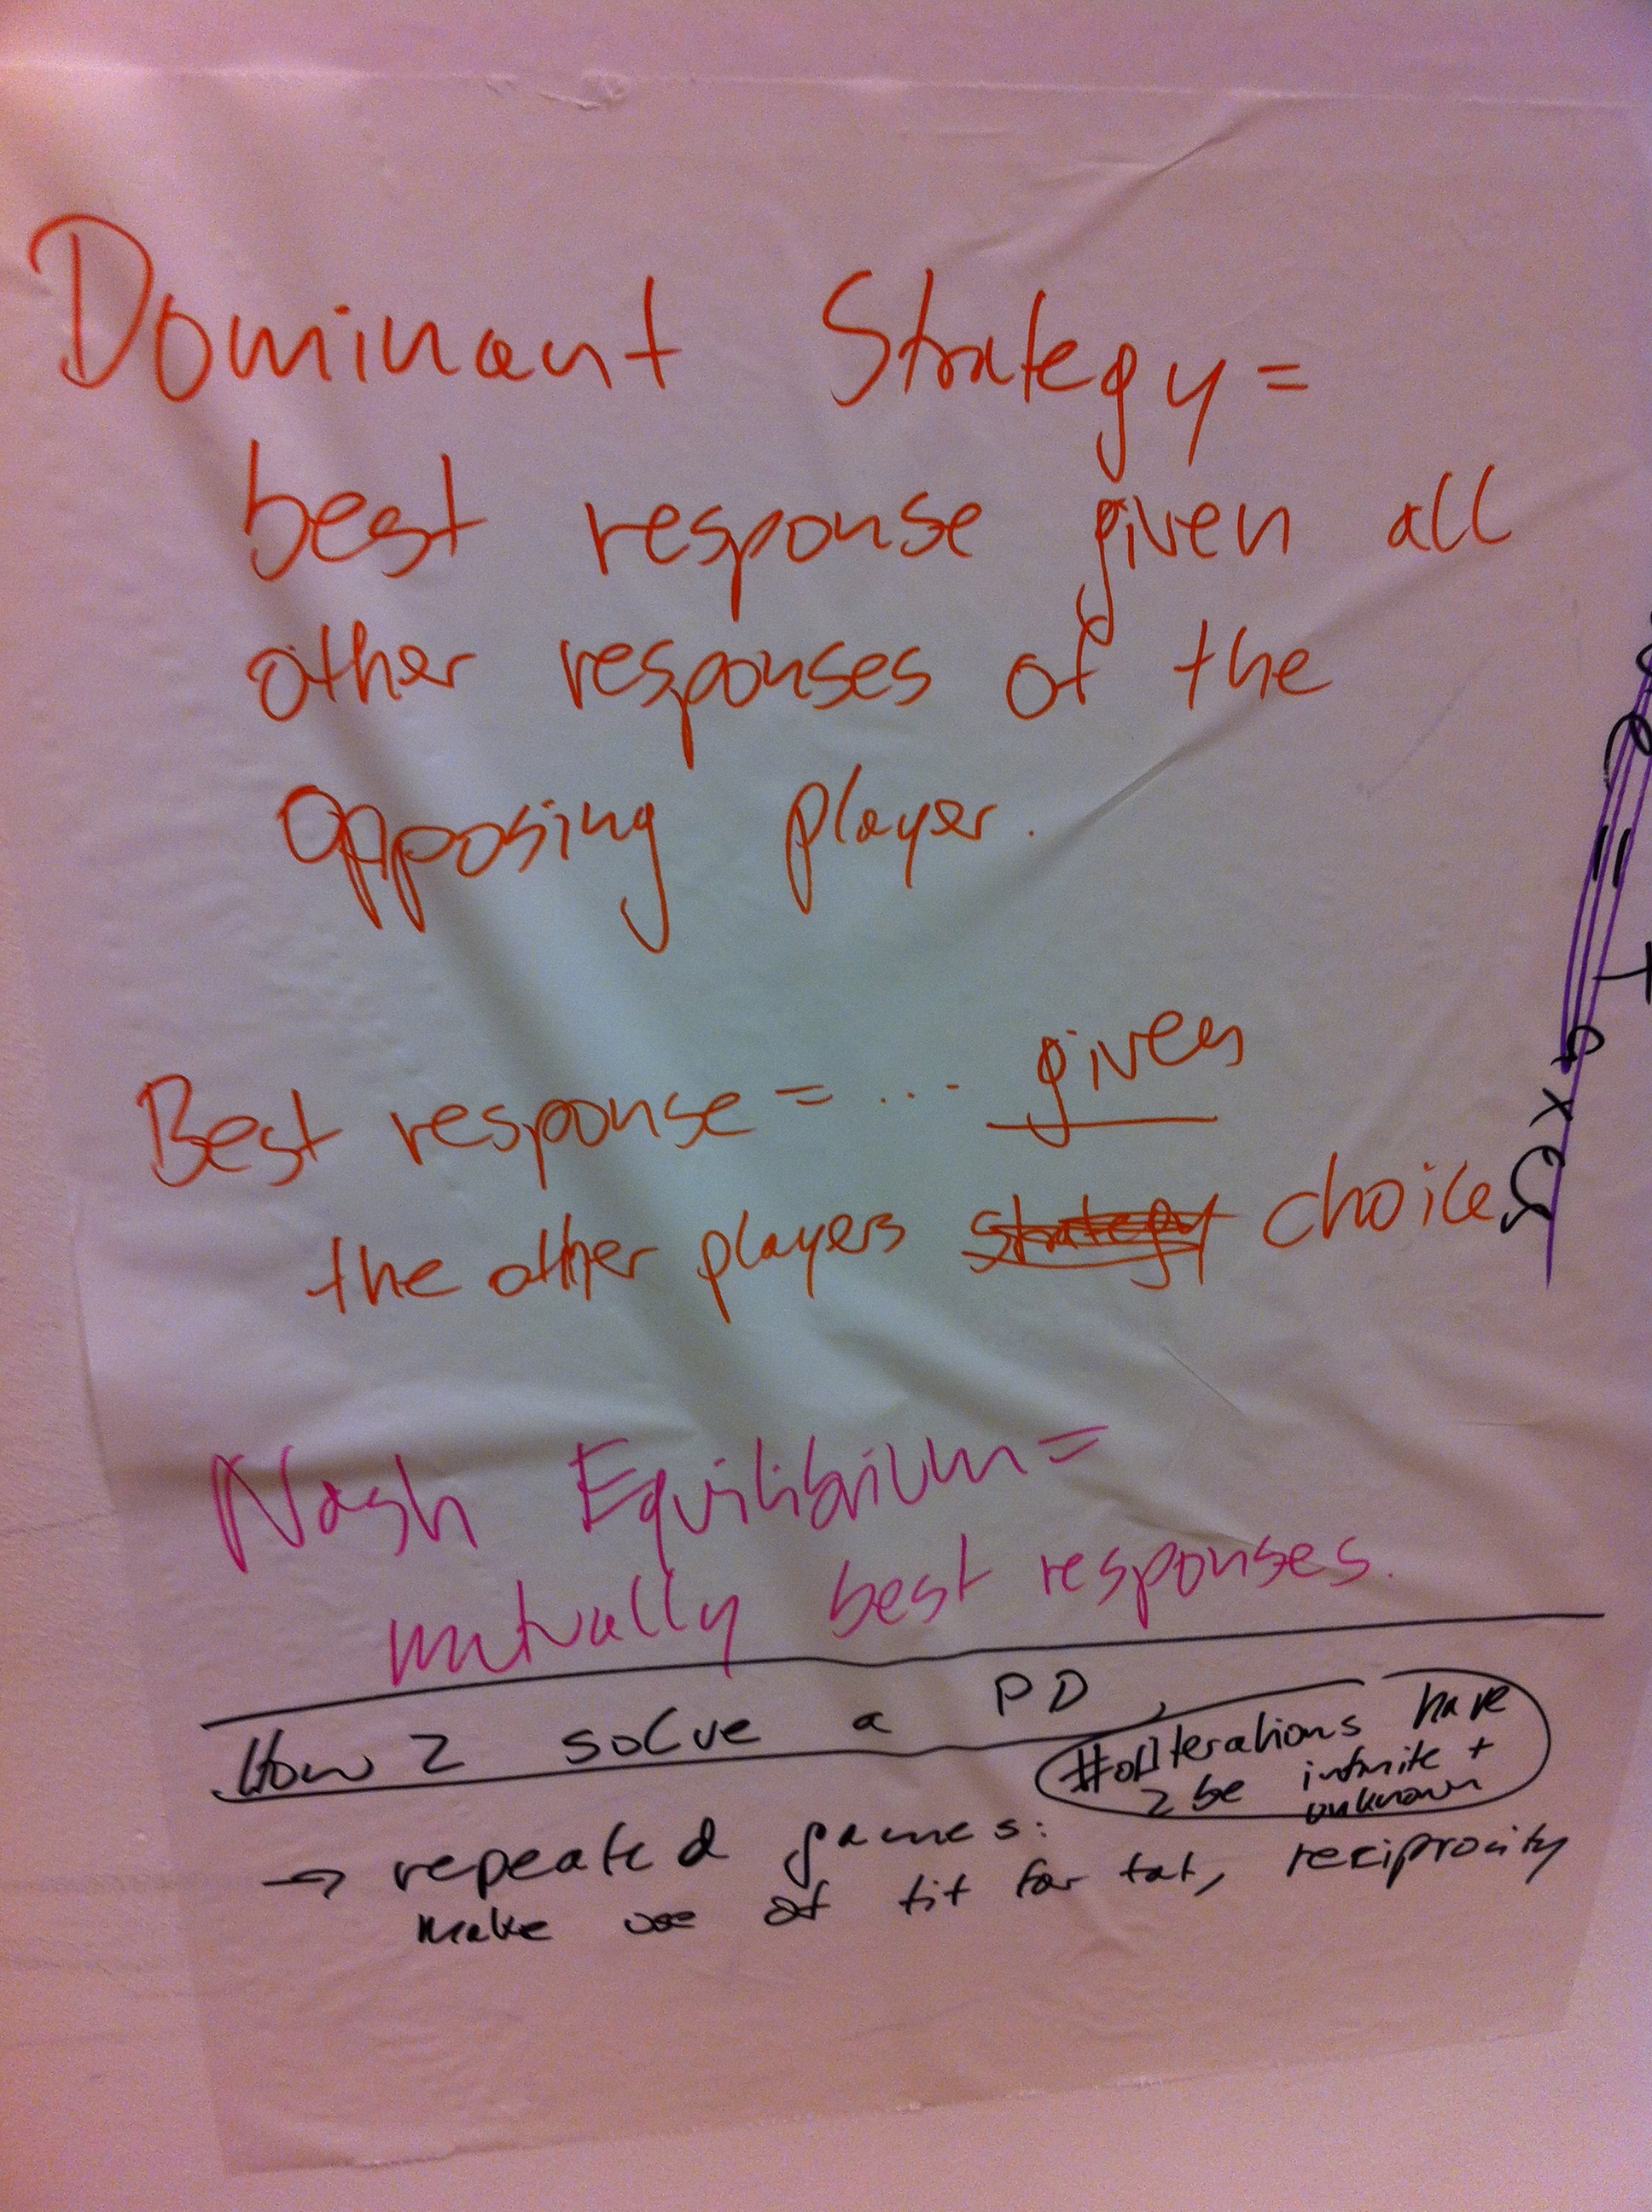 Dominant Strategy =
best response given all
other responses of the
opposing player.
Best response = ... given
the other players strategy choice
Nash Equilibrium =
mutually best responses.
How 2 solve a PD
#of Iterations have
2 be infinite +
unknown
→ repeated games:
make use of tit for tat, reciprocity